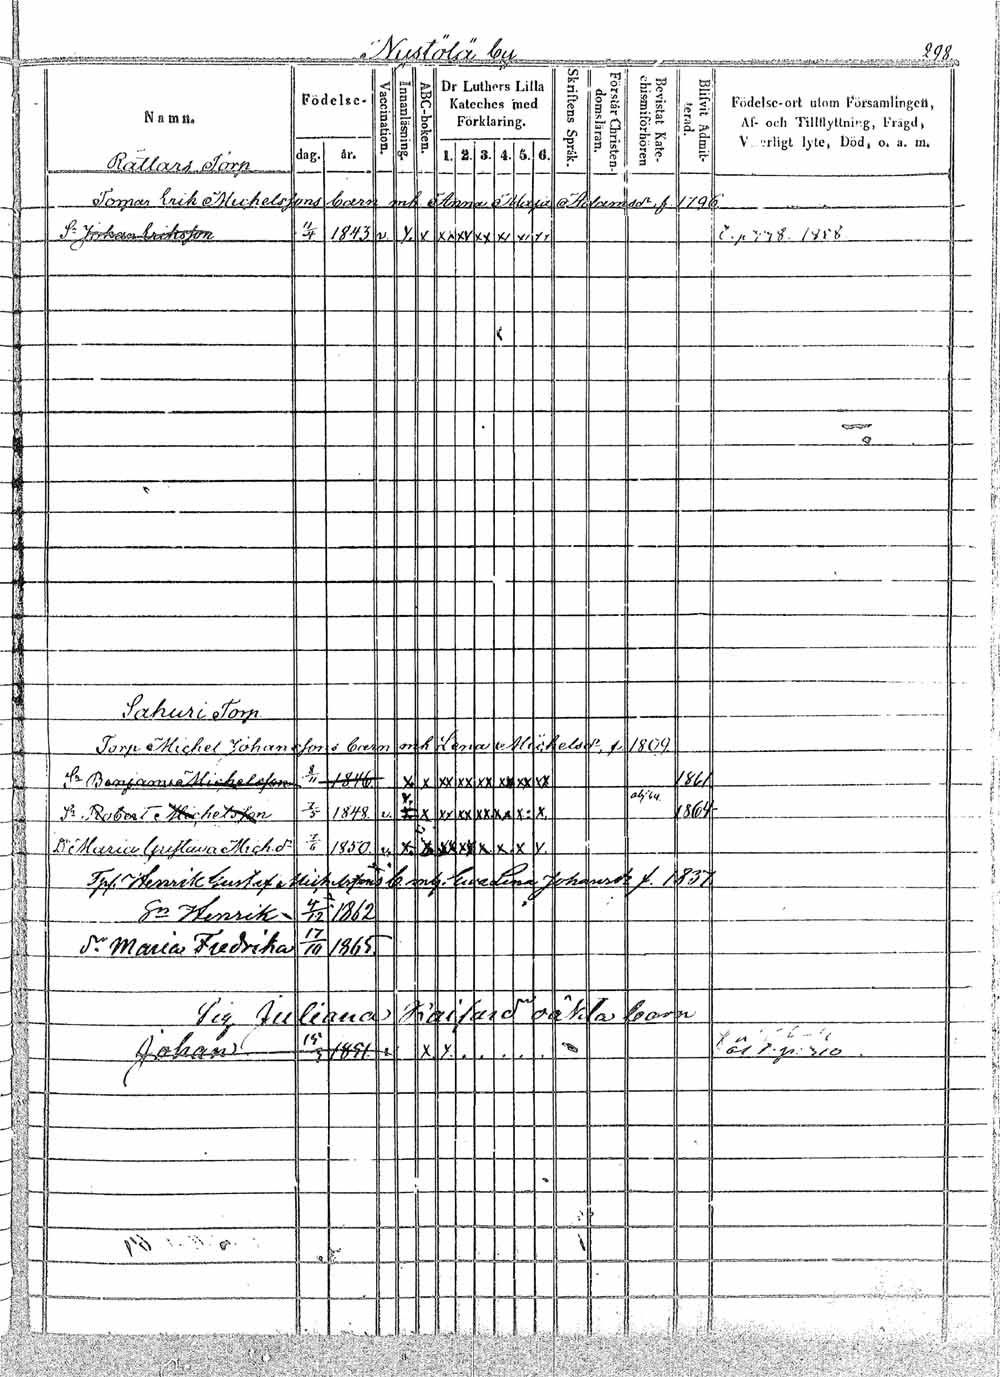 Nystölä by 298
Namn. Födelse- dag. år. Vaccination. Innanläsning. ABC-boken. Dr Luthers Lilla Kateches med Förklaring. 1. 2. 3. 4. 5. 6. Skriftens Språk. Förstår Christendomsläran. Bevistat Katechismiförhören Blifvit Admitterad. Födelse-ort utom Församlingen, Af- och Tillflyttning, Frägd, V erligt lyte, Död, o. a. m.
Rättars Torp
Tomar Erik Michelssons barn mh Anna Maja Adamsdr, f 1796
Sn Johan Eriksson 11/4 1843 v. x. x xx xx xx x x x 1858
Sahuri Torp
Torp. Michel Johanssons barn mh Lena Michelsdr, f. 1809
Sn Benjamin Michelsson 8/11 1846 x x xx xx xx xx xx xx 1861
Sn Robert Michelsson 7/5 1848 v. x x xx xx xx x x x 1864
Dr Maria Gustava Michdr 7/6 1850 v. x x xx xx x x x x
Tpf. Henrik Gustaf Michelssons b. m h. Ewa Lena Johansdr f. 1837
Sn Henrik 4/12 1862
dr Maria Fredrika 17/10 1865
Pig Juliana oäkta barn
Johan 15 1851 v x x